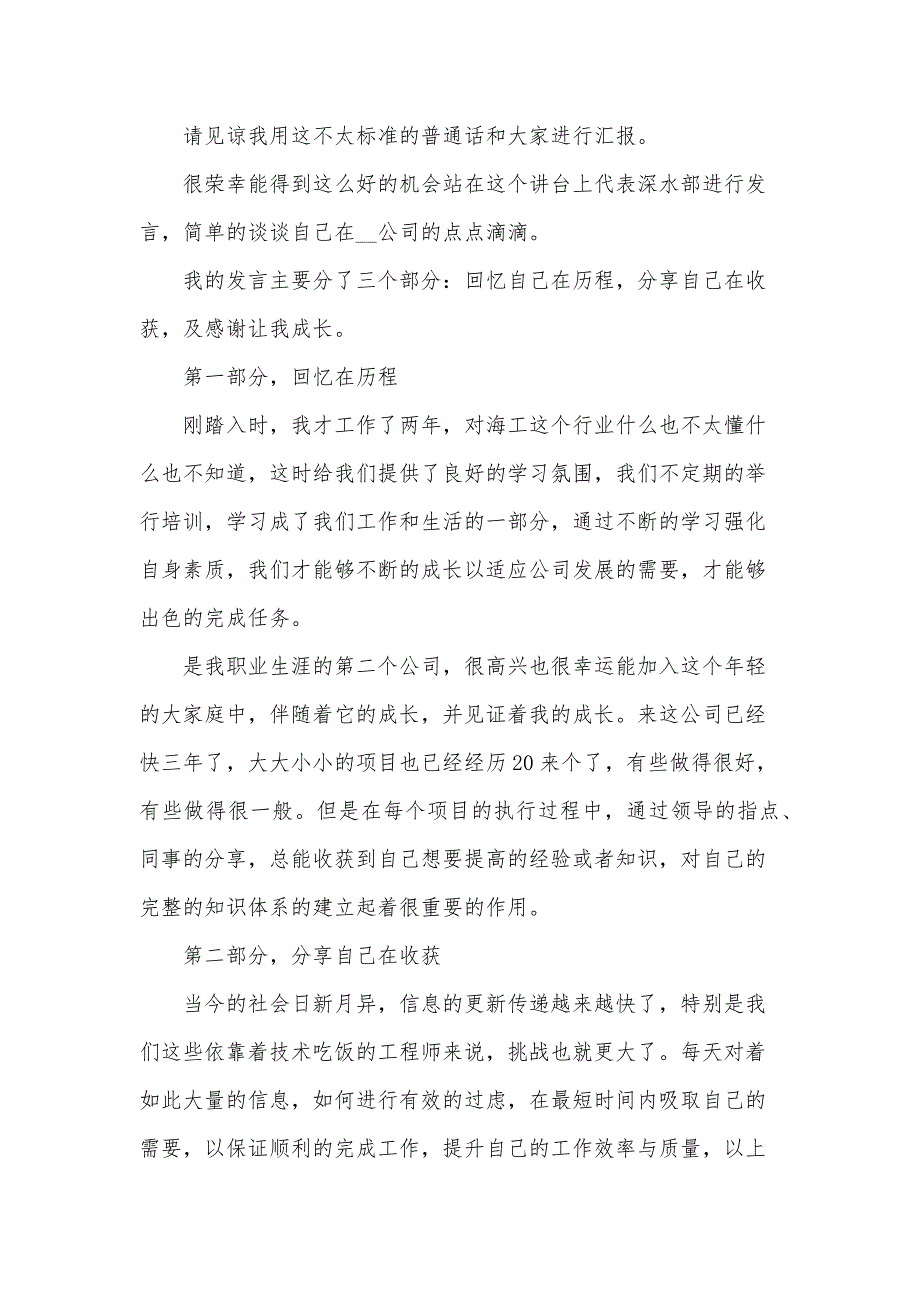 请见谅我用这不太标准的普通话和大家进行汇报。
很荣幸能得到这么好的机会站在这个讲台上代表深水部进行发
言，简单的谈谈自己在__公司的点点滴滴。
我的发言主要分了三个部分：回忆自己在历程，分享自己在收
获，及感谢让我成长。
第一部分，回忆在历程
刚踏入时，我才工作了两年，对海工这个行业什么也不太懂什
么也不知道，这时给我们提供了良好的学习氛围，我们不定期的举
行培训，学习成了我们工作和生活的一部分，通过不断的学习强化
自身素质，我们才能够不断的成长以适应公司发展的需要，才能够
出色的完成任务。
是我职业生涯的第二个公司，很高兴也很幸运能加入这个年轻
的大家庭中，伴随着它的成长，并见证着我的成长。来这公司已经
快三年了，大大小小的项目也已经经历20来个了，有些做得很好，
有些做得很一般。但是在每个项目的执行过程中，通过领导的指点、
同事的分享，总能收获到自己想要提高的经验或者知识，对自己的
完整的知识体系的建立起着很重要的作用。
第二部分，分享自己在收获
当今的社会日新月异，信息的更新传递越来越快了，特别是我
们这些依靠着技术吃饭的工程师来说，挑战也就更大了。每天对着
如此大量的信息，如何进行有效的过虑，在最短时间内吸取自己的
需要，以保证顺利的完成工作，提升自己的工作效率与质量，以上